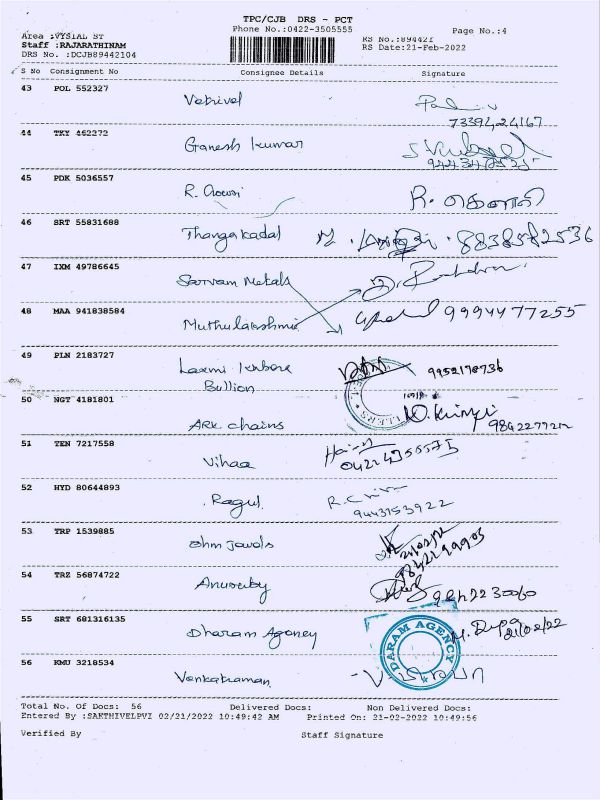 TPC/CJB DRS - PCT
Phone No.:0422-3505555
Page No.:4
Area :VYSIAL ST
RS No.:894421
Staff :RAJARATHINAM
RS Date:21-Feb-2022
DRS No. :DCJB89442104
S No Consignment No Consignee Details Signature
43 POL 552327 Vetrivel
7339424167
44 TKY 462272 Ganesh kumar
45 PDK 5036557 R. Gowri R. கௌரி
46 SRT 55831688 Thangakadal 8838582536
47 IXM 49786645 Sarvam Metals
48 MAA 941838584 Muthulakshmi 9994477255
49 PLN 2183727 Laxmi Kubera 9952178736
Bullion
50 NGT 4181801 ARK chains 9842277212
51 TEN 7217558 Vihaa
52 HYD 80644893 Ragul 9443153922
53 TRP 1539885 Ohm Jewels
21/02/22
54 TRZ 56874722
55 SRT 681316135 Dharam Agency 21/02/22
DARAM AGENCY
56 KMU 3218534 Venkatraman
Total No. Of Docs: 56 Delivered Docs: Non Delivered Docs:
Entered By :SAKTHIVELPVI 02/21/2022 10:49:42 AM Printed On: 21-02-2022 10:49:56
Verified By Staff Signature